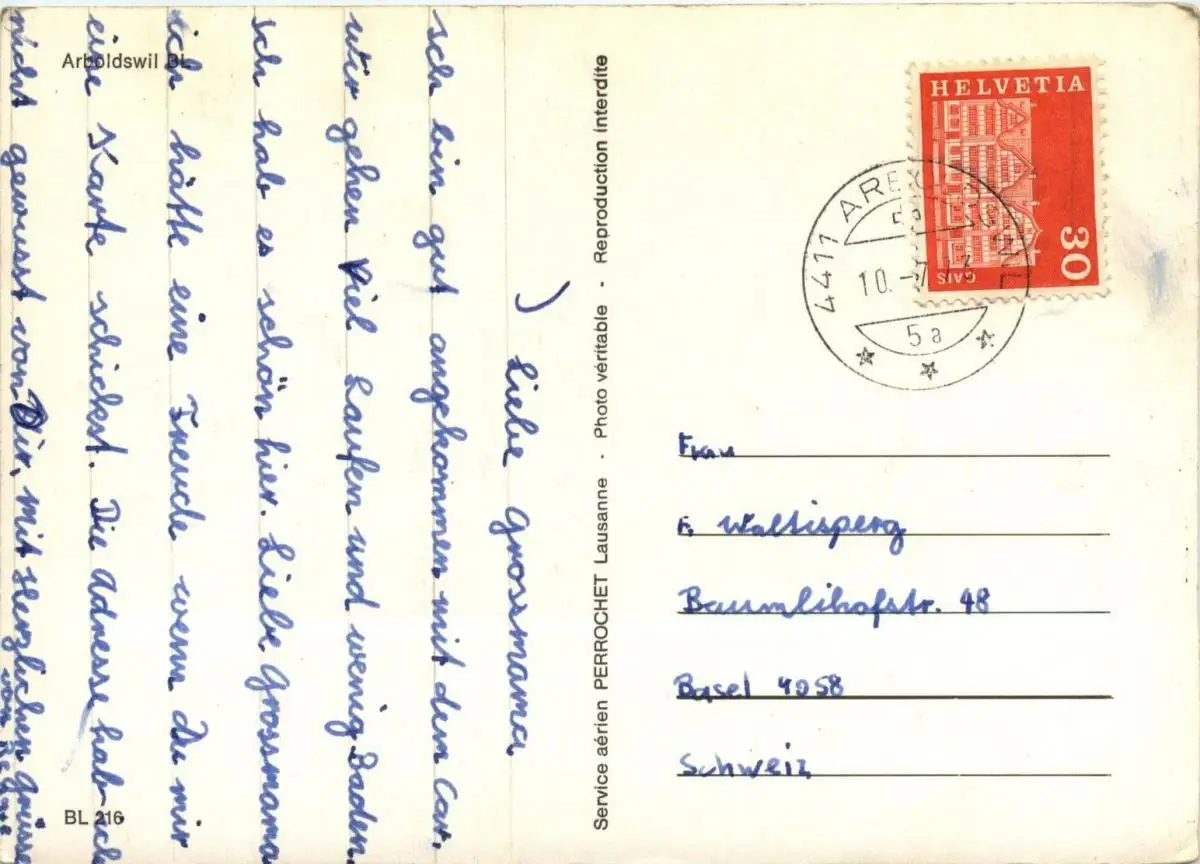 Arboldswil BL
Liebe Grossmama
Ich bin gut angekommen, mit dem Car.
wir gehen Viel Laufen und wenig Baden.
Ich hab es schön hier. Liebe Grossmama
ich hätte eine Freude wenn Du mir
eine Karte schickst. Die Adresse hab ich
nicht gewusst von Dir, mit Herzlichen Grüsse
von
BL 216
Service aérien PERROCHET Lausanne · Photo véritable · Reproduction interdite
HELVETIA
30
GAIS
4411
10.
5a
Frau
Waltisperg
Baumlihofstr. 48
Basel 4058
Schweiz